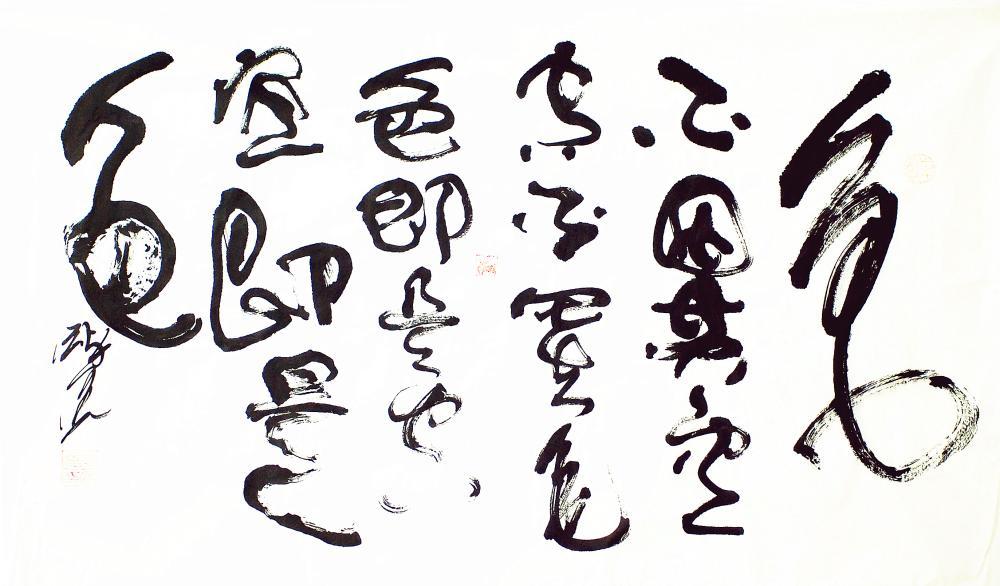 色
不異空
空不異色
色即是空
空即是
色